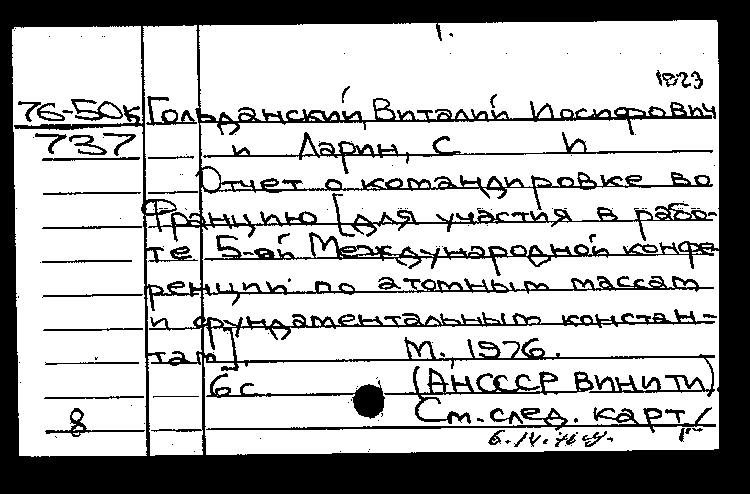 1.
1923
76-50к Гольданский, Виталий Иосифович
737 и Ларин, С И
Отчет о командировке во
Францию [для участия в рабо-
те 5-ой Международной конфе
ренции по атомным массам
и фундаментальным констан-
там]. М., 1976.
6 с. (АНСССР ВИНИТИ).
8 См. след. карт/